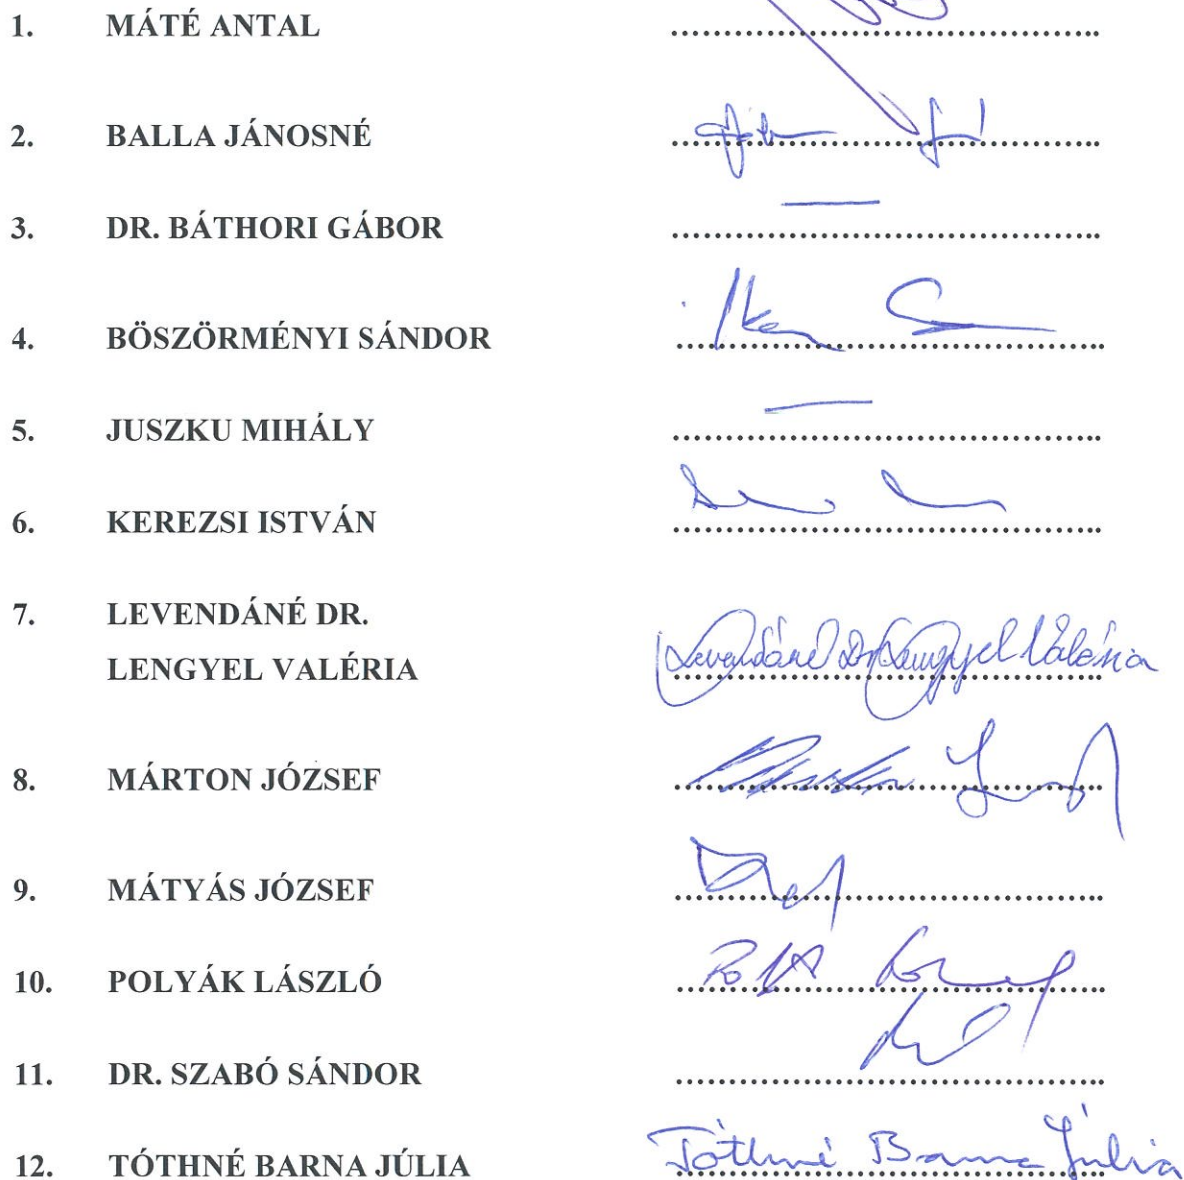 1. MÁTÉ ANTAL ..........................................
2. BALLA JÁNOSNÉ ..........................................
3. DR. BÁTHORI GÁBOR ..........................................
4. BÖSZÖRMÉNYI SÁNDOR ..........................................
5. JUSZKU MIHÁLY ..........................................
6. KEREZSI ISTVÁN ..........................................
7. LEVENDÁNÉ DR.
LENGYEL VALÉRIA Levendáné Dr. Lengyel Valéria
8. MÁRTON JÓZSEF ..........................................
9. MÁTYÁS JÓZSEF ..........................................
10. POLYÁK LÁSZLÓ ..........................................
11. DR. SZABÓ SÁNDOR ..........................................
12. TÓTHNÉ BARNA JÚLIA Tóthné Barna Júlia